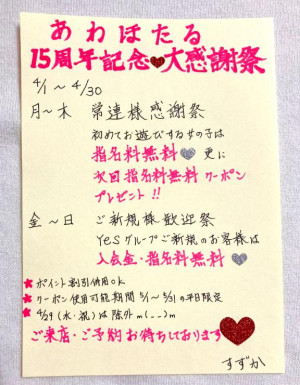 あわほたる
15周年記念♥大感謝祭
4/1〜4/30
月〜木 常連様感謝祭
初めてお遊びする女の子は
指名料無料♥更に
次回指名料無料クーポン
プレゼント!!
金〜日 ご新規様歓迎祭
Yesグループご新規のお客様は
入会金・指名料無料♥
★ポイント割引併用OK
★クーポン使用可能期間 5/1〜5/31の平日限定
★4/29(水・祝)は除外m(__)m
ご来店・ご予約お待ちしております♥
すずか